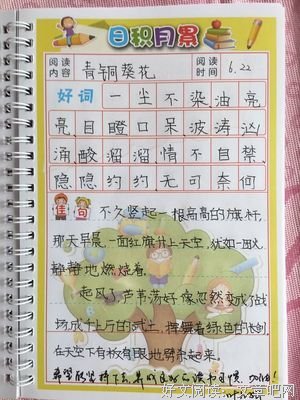 日积月累
阅读内容 青铜葵花 阅读时间 6.22
好词 一尘不染油亮
亮、目瞪口呆波涛汹
涌、酸溜溜情不自禁、
隐隐约约、无可奈何
佳句 不久竖起一根高高的旗杆,
那天早晨,一面红旗升上天空,犹如一团火,
静静地燃烧着。
起风了芦苇荡好像忽然变成了战
场成千上万的武士,挥舞着绿色的
在天空下有板有眼地劈杀起来。
希望你坚持下去,养成良好的读书习惯。
好文阅读:文章吧网